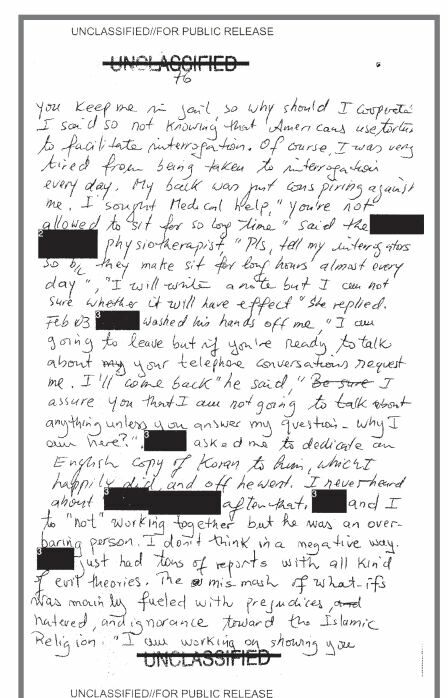 UNCLASSIFIED//FOR PUBLIC RELEASE
UNCLASSIFIED
76
you keep me in jail, so why should I cooperate
I said so not knowing that Americans use torture
to facilitate interrogation. Of course, I was very
tired from being taken to interrogation
every day. My back was just conspiring against
me. I sought Medical help, "you're not
allowed to sit for so long time" said the
2 physiotherapist, "Pls, tell my interrogators
so b/c they make sit for long hours almost every
day", "I will write a note but I am not
sure whether it will have effect" she replied.
Feb 03 3 washed his hands off me, "I am
going to leave but if you're ready to talk
about my your telephone conversations request
me. I'll come back" he said, "Be sure I
assure you that I am not going to talk about
anything unless you answer my question - why I
am here?". 3 asked me to dedicate an
English copy of Koran to him, which I
happily did, and off he went. I never heard
about 3 after that, 3 and I
to "not" working together but he was an over-
baring person. I don't think in a negative way.
3 just had tons of reports with all kind
of evil theories. The mismash of what-ifs
was mainly fueled with prejudices, and
hatered, and ignorance toward the Islamic
Religion. "I am working on showing you
UNCLASSIFIED
UNCLASSIFIED//FOR PUBLIC RELEASE